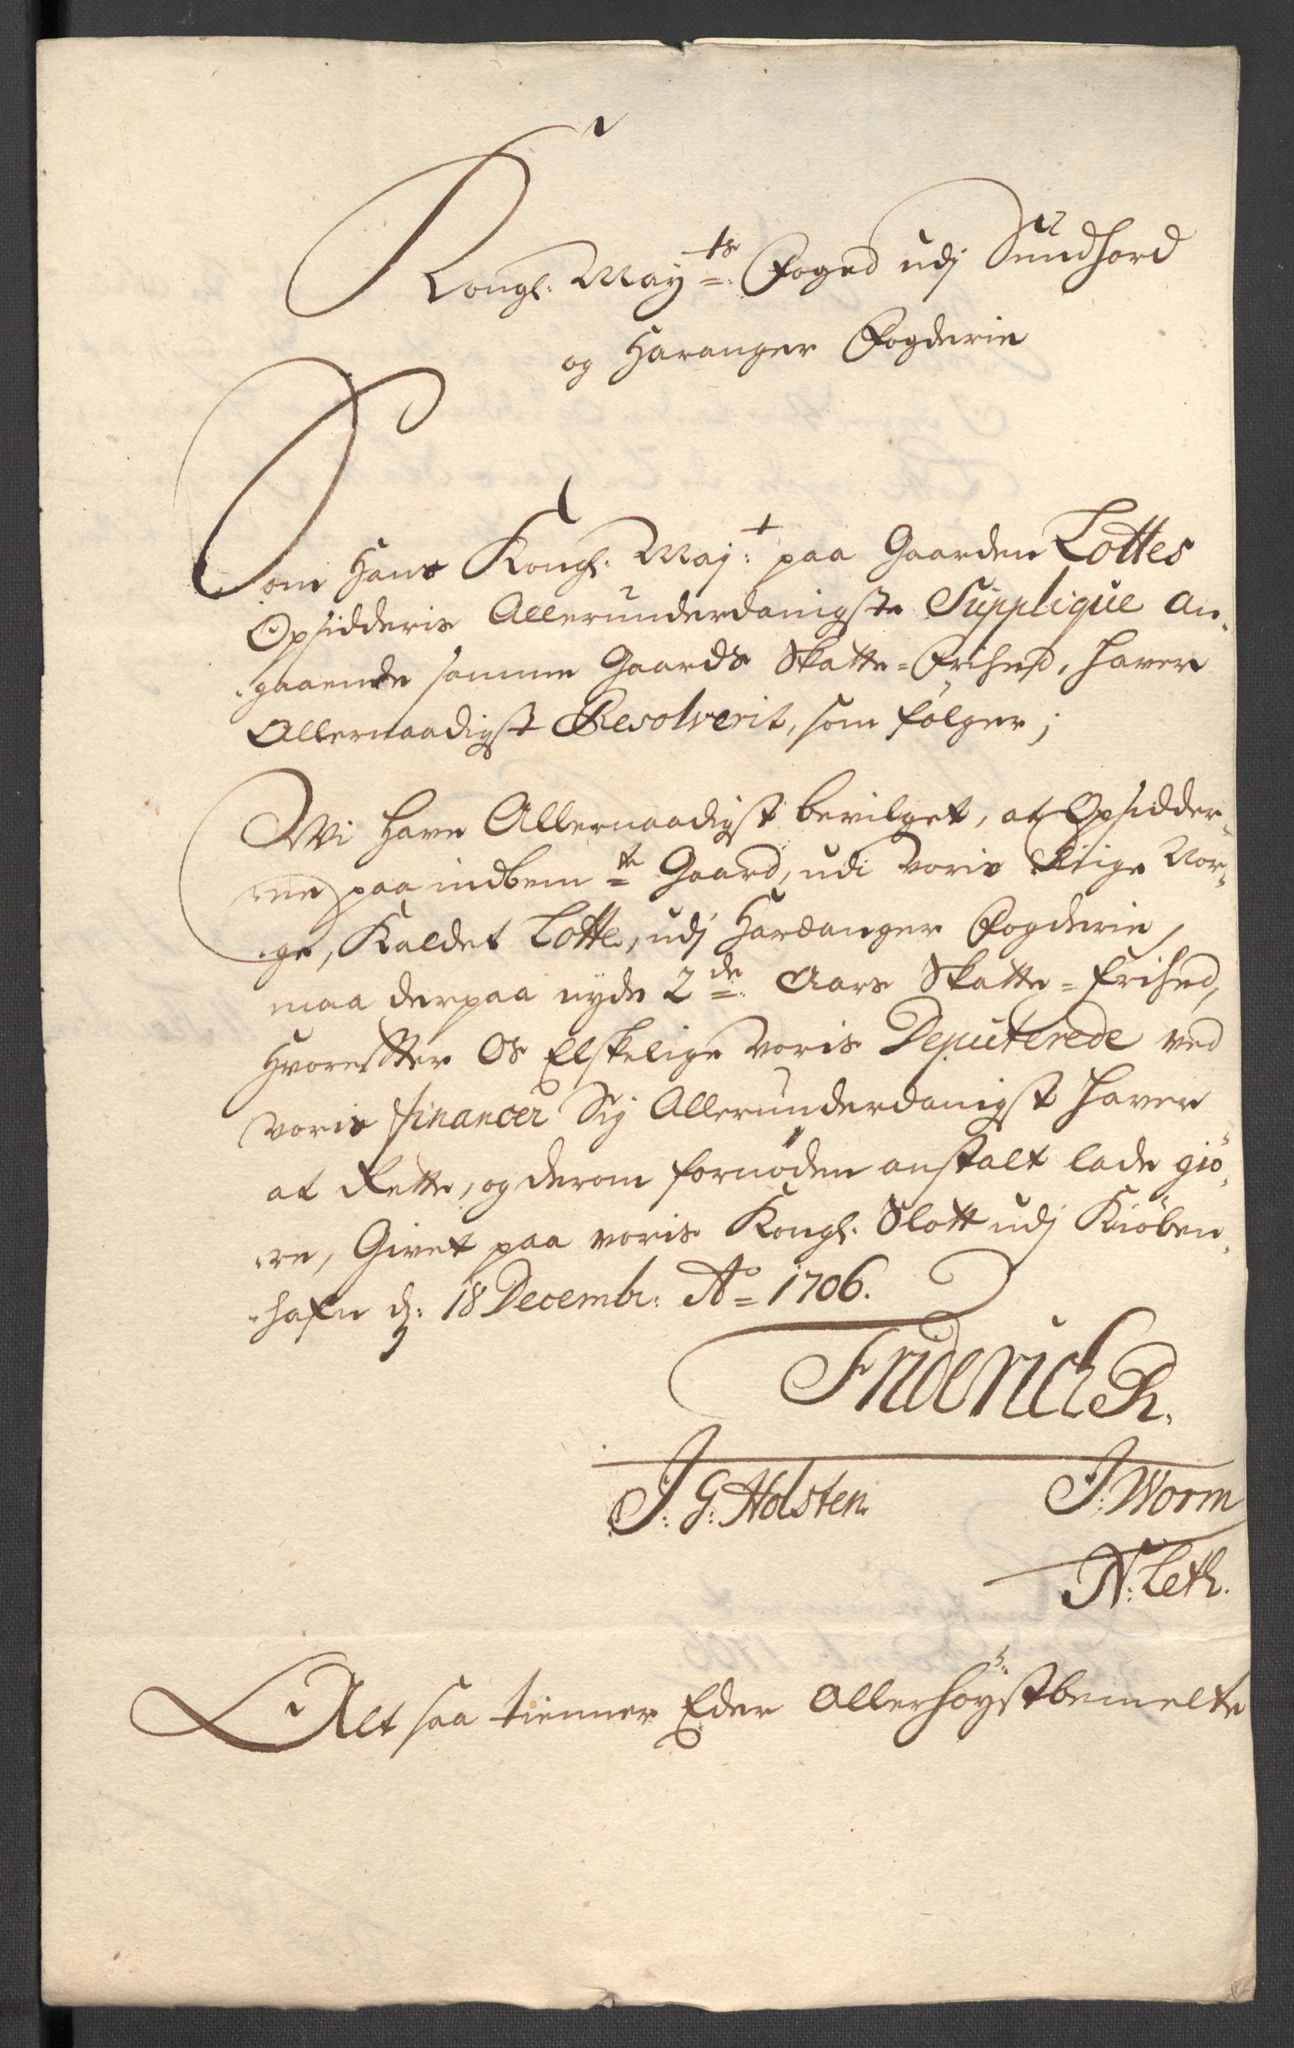 Kongl: May:ts Foged udj Sundhord
og Haranger Fogderie
Som Hans Kongl: Maj:t paa Gaarden Lottes
Opsidderis Allerunderdanigste Supplique an-
gaaende samme Gaards Skatte-Frihed, haver
Allernaadigst Resolverit, som følger;
Wi have Allernaadigst bevilget, at Opsidder-
ne paa indbem:te Gaard, udi voris Riige Nor-
ge, Kaldet Lotte, udj Hardanger Fogderie,
maa derpaa nyde 2de Aars Skatte-Frihed,
Hvorefter Os Elskelige voris Deputerede ved
voris financer Sig Allerunderdanigst haver
at Rette, og derom fornøden anstalt lade giö-
re, Givet paa voris Kongl: Slott udj Kiöben-
hafn d: 18 Decembr: Ao 1706.
Friderich R.
J: G: Holsten J: Worm
N: Leth.
Alt saa tienner Eder Allerhöystbemelte